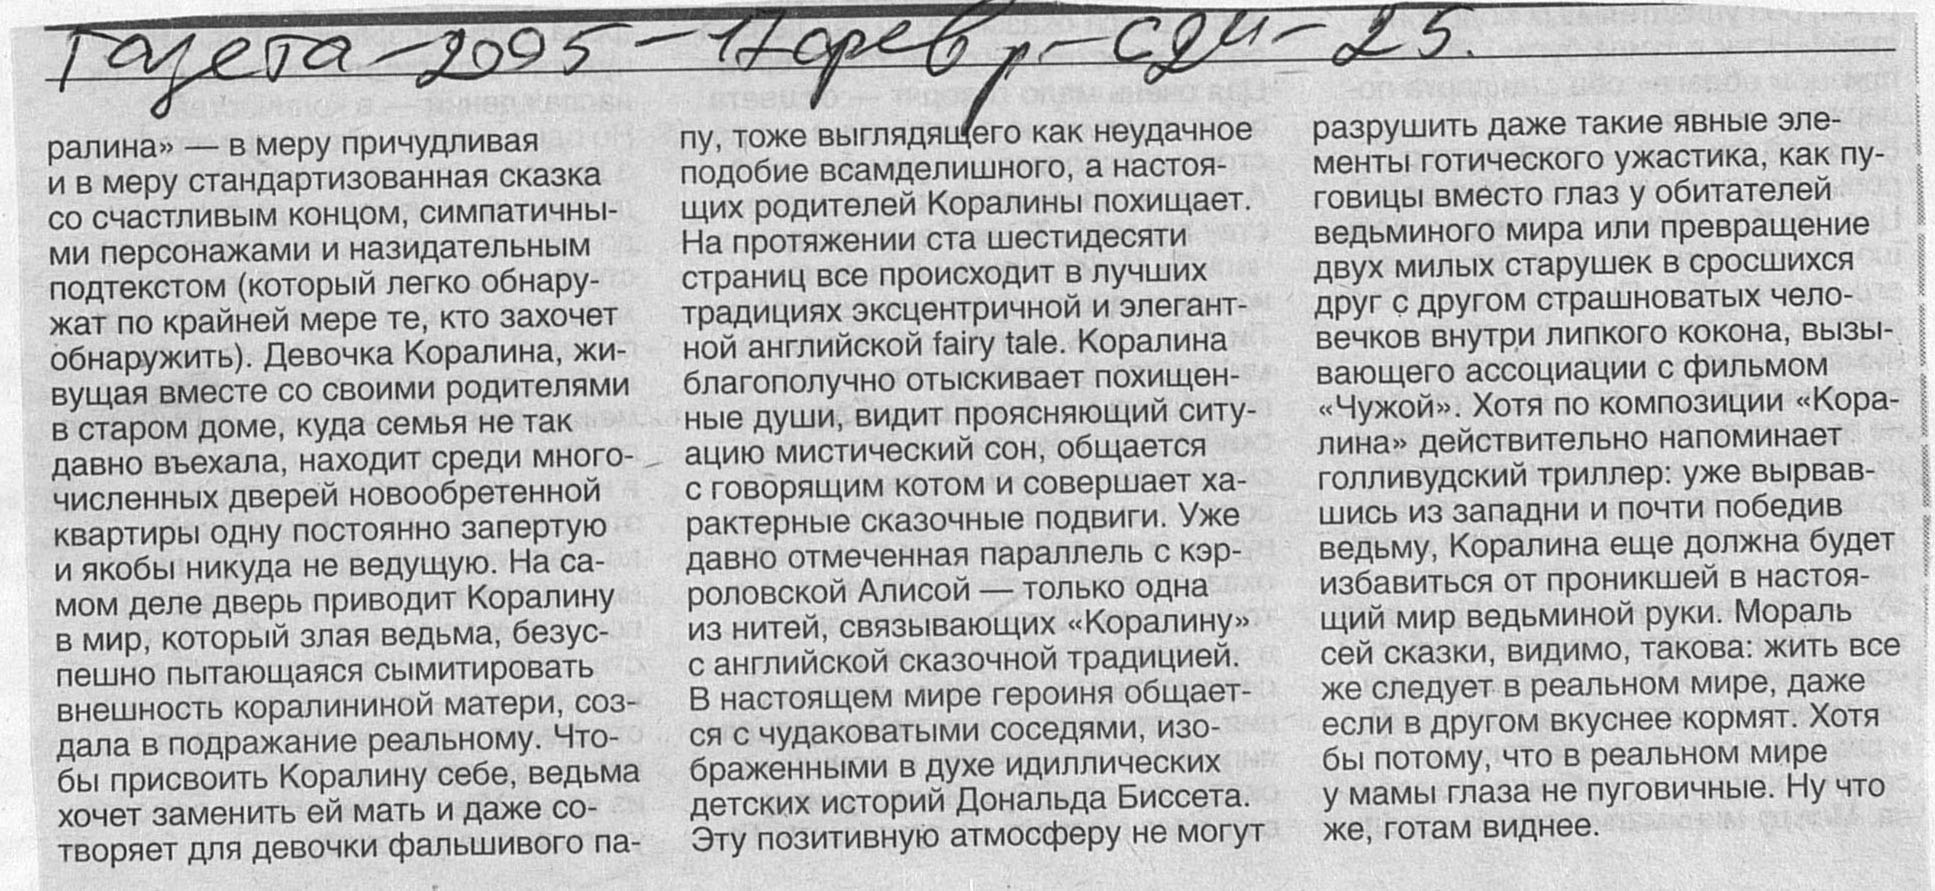 Газета - 2005 - 17 февр - с 24 - 25.
ралина» — в меру причудливая
и в меру стандартизованная сказка
со счастливым концом, симпатичны-
ми персонажами и назидательным
подтекстом (который легко обнару-
жат по крайней мере те, кто захочет
обнаружить). Девочка Коралина, жи-
вущая вместе со своими родителями
в старом доме, куда семья не так
давно въехала, находит среди много-
численных дверей новообретенной
квартиры одну постоянно запертую
и якобы никуда не ведущую. На са-
мом деле дверь приводит Коралину
в мир, который злая ведьма, безус-
пешно пытающаяся сымитировать
внешность коралининой матери, соз-
дала в подражание реальному. Что-
бы присвоить Коралину себе, ведьма
хочет заменить ей мать и даже со-
творяет для девочки фальшивого па-
пу, тоже выглядящего как неудачное
подобие всамделишного, а настоя-
щих родителей Коралины похищает.
На протяжении ста шестидесяти
страниц все происходит в лучших
традициях эксцентричной и элегант-
ной английской fairy tale. Коралина
благополучно отыскивает похищен-
ные души, видит проясняющий ситу-
ацию мистический сон, общается
с говорящим котом и совершает ха-
рактерные сказочные подвиги. Уже
давно отмеченная параллель с кэр-
роловской Алисой — только одна
из нитей, связывающих «Коралину»
с английской сказочной традицией.
В настоящем мире героиня общает-
ся с чудаковатыми соседями, изо-
браженными в духе идиллических
детских историй Дональда Биссета.
Эту позитивную атмосферу не могут
разрушить даже такие явные эле-
менты готического ужастика, как пу-
говицы вместо глаз у обитателей
ведьминого мира или превращение
двух милых старушек в сросшихся
друг с другом страшноватых чело-
вечков внутри липкого кокона, вызы-
вающего ассоциации с фильмом
«Чужой». Хотя по композиции «Кора-
лина» действительно напоминает
голливудский триллер: уже вырвав-
шись из западни и почти победив
ведьму, Коралина еще должна будет
избавиться от проникшей в настоя-
щий мир ведьминой руки. Мораль
сей сказки, видимо, такова: жить все
же следует в реальном мире, даже
если в другом вкуснее кормят. Хотя
бы потому, что в реальном мире
у мамы глаза не пуговичные. Ну что
же, готам виднее.